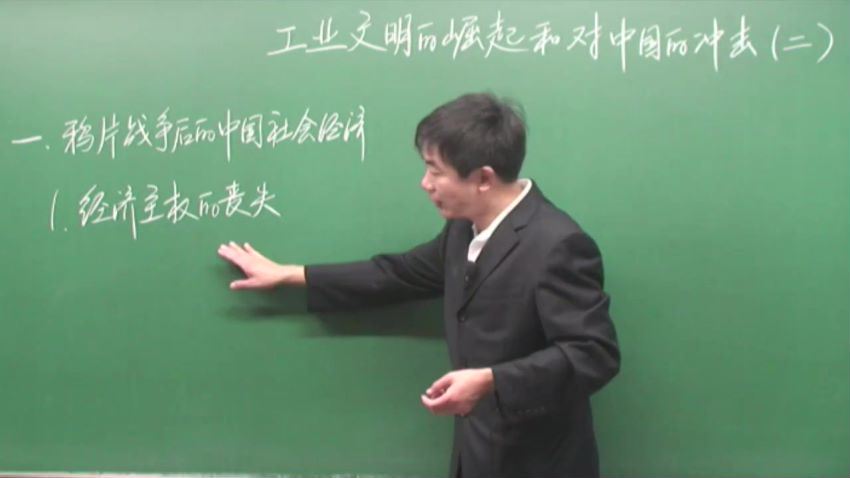 工业文明的崛起和对中国的冲击(二)
一.鸦片战争后的中国社会经济
1.经济主权的丧失